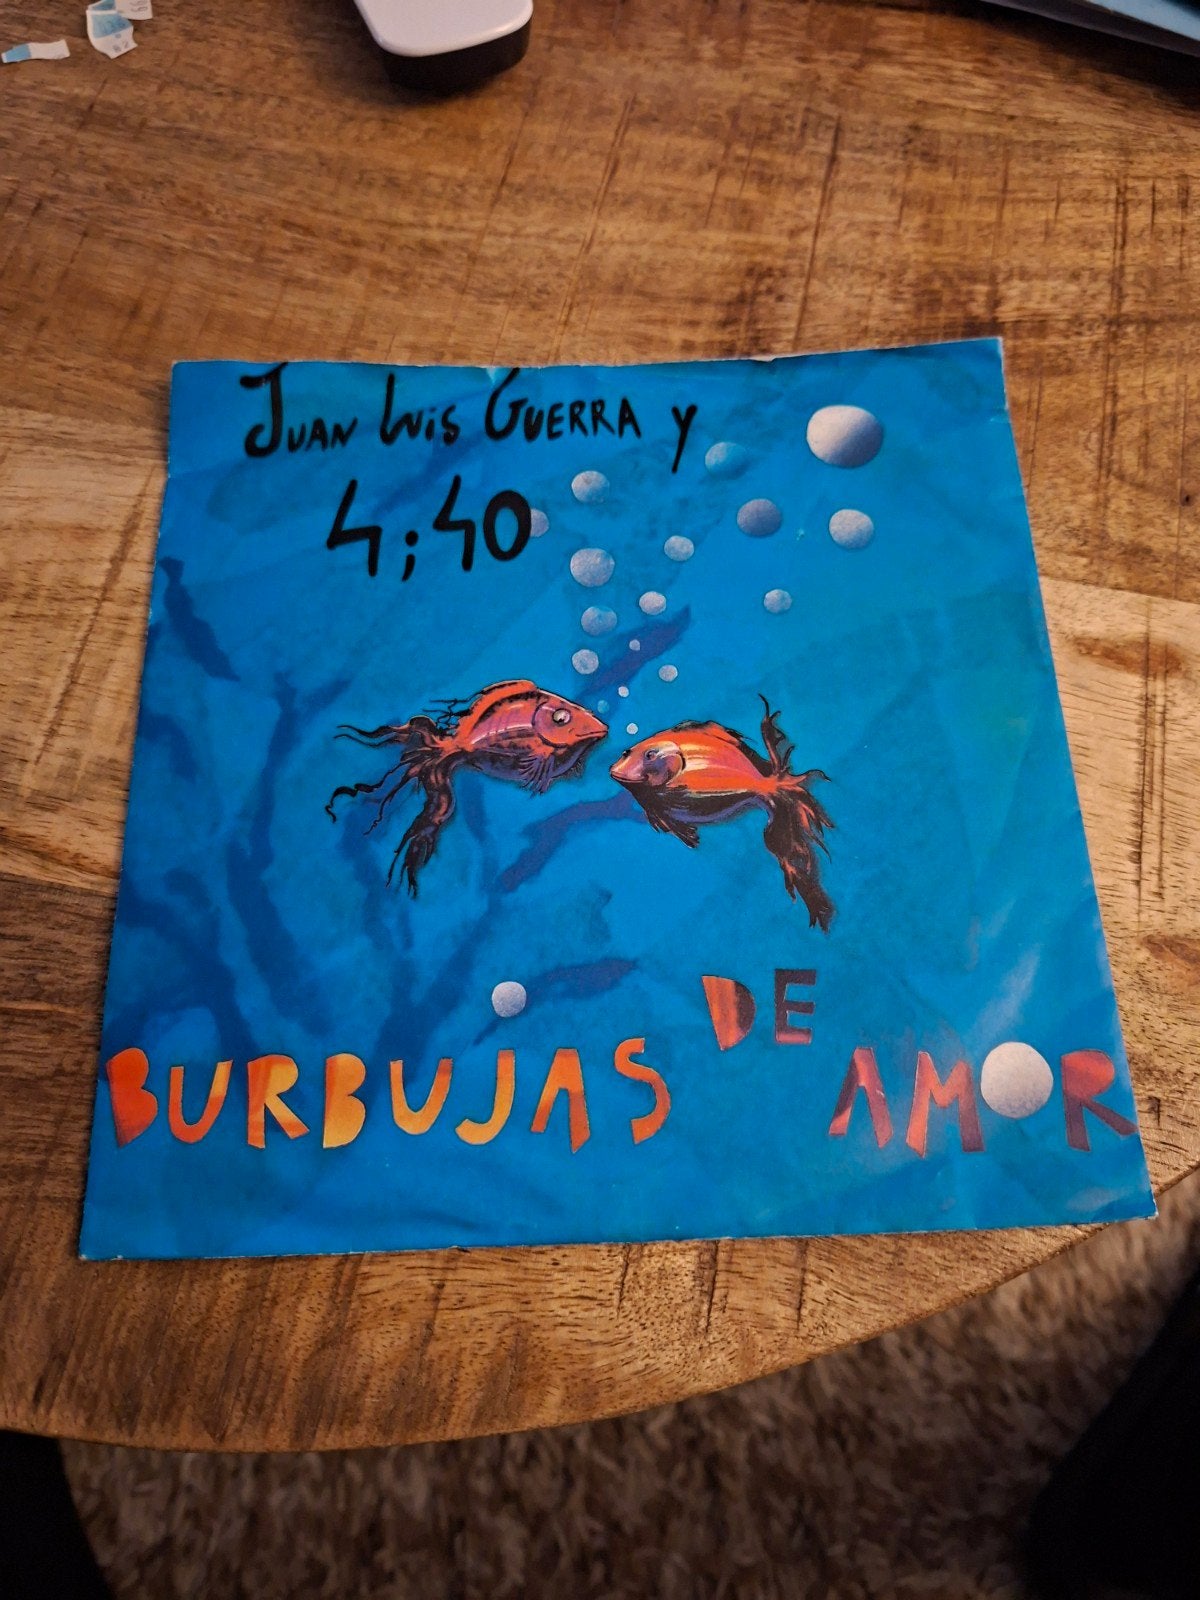 Juan Luis Guerra y
4;40
BURBUJAS DE AMOR